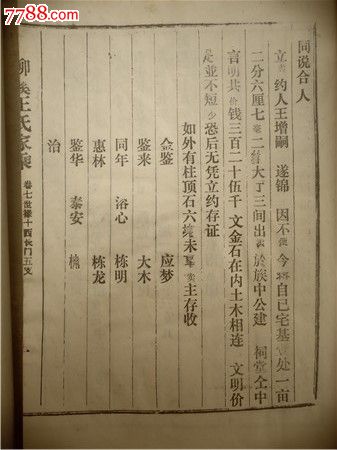 同说合人
立 约人王增嗣 遂锦 因不 今将自己宅基 处一亩
二分六厘七毫二 大丁三间出 於族中公建 祠堂仝中
言明共价钱三百二十伍千 文金石在内土木相连 文明价
足並不短少恐后无凭立约存证
如外有柱顶石六 未 卖主存收
金鉴 应梦
鉴来 大木
同年 浴心 栋明
惠林 栋龙
鉴华 泰安
治
柳 王氏家乘 卷七世 十四 长门五支 一
华夏收藏网